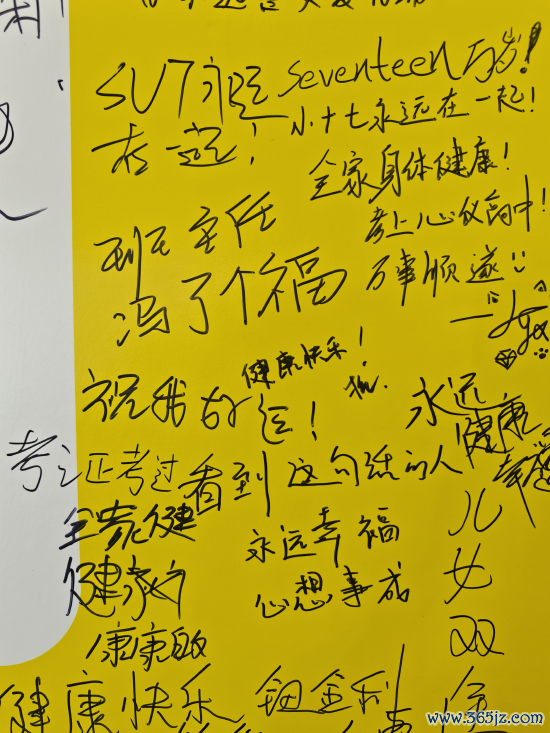 SVT永远
在一起!
seventeen万岁!
小十七永远在一起!
全家身体健康!
考上心仪高中!
万事顺遂
班主任
冯了个福
健康快乐!
祝我好运!
永远
健康
幸福
考证考过
看到这句话的人
永远幸福
心想事成
全家健
健康
康康
儿
女
双
全
健康快乐
www.365jz.com